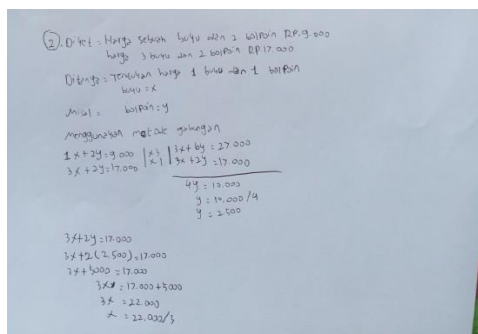 2). Diket = Harga sebuah buku dan 2 bolpoin RP.9.000
harga 3 buku dan 2 bolpoin RP.17.000
Ditanya = Tentukan harga 1 buku dan 1 bolpoin
buku = x
Misal = bolpoin = y
Menggunakan metode gabungan
1x + 2y = 9.000 | x3 | 3x + 6y = 27.000
3x + 2y = 17.000 | x1 | 3x + 2y = 17.000
4y = 10.000
y = 10.000/4
y = 2.500
3x + 2y = 17.000
3x + 2(2.500) = 17.000
3x + 5000 = 17.000
3x = 17.000 + 5000
3x = 22.000
x = 22.000/3